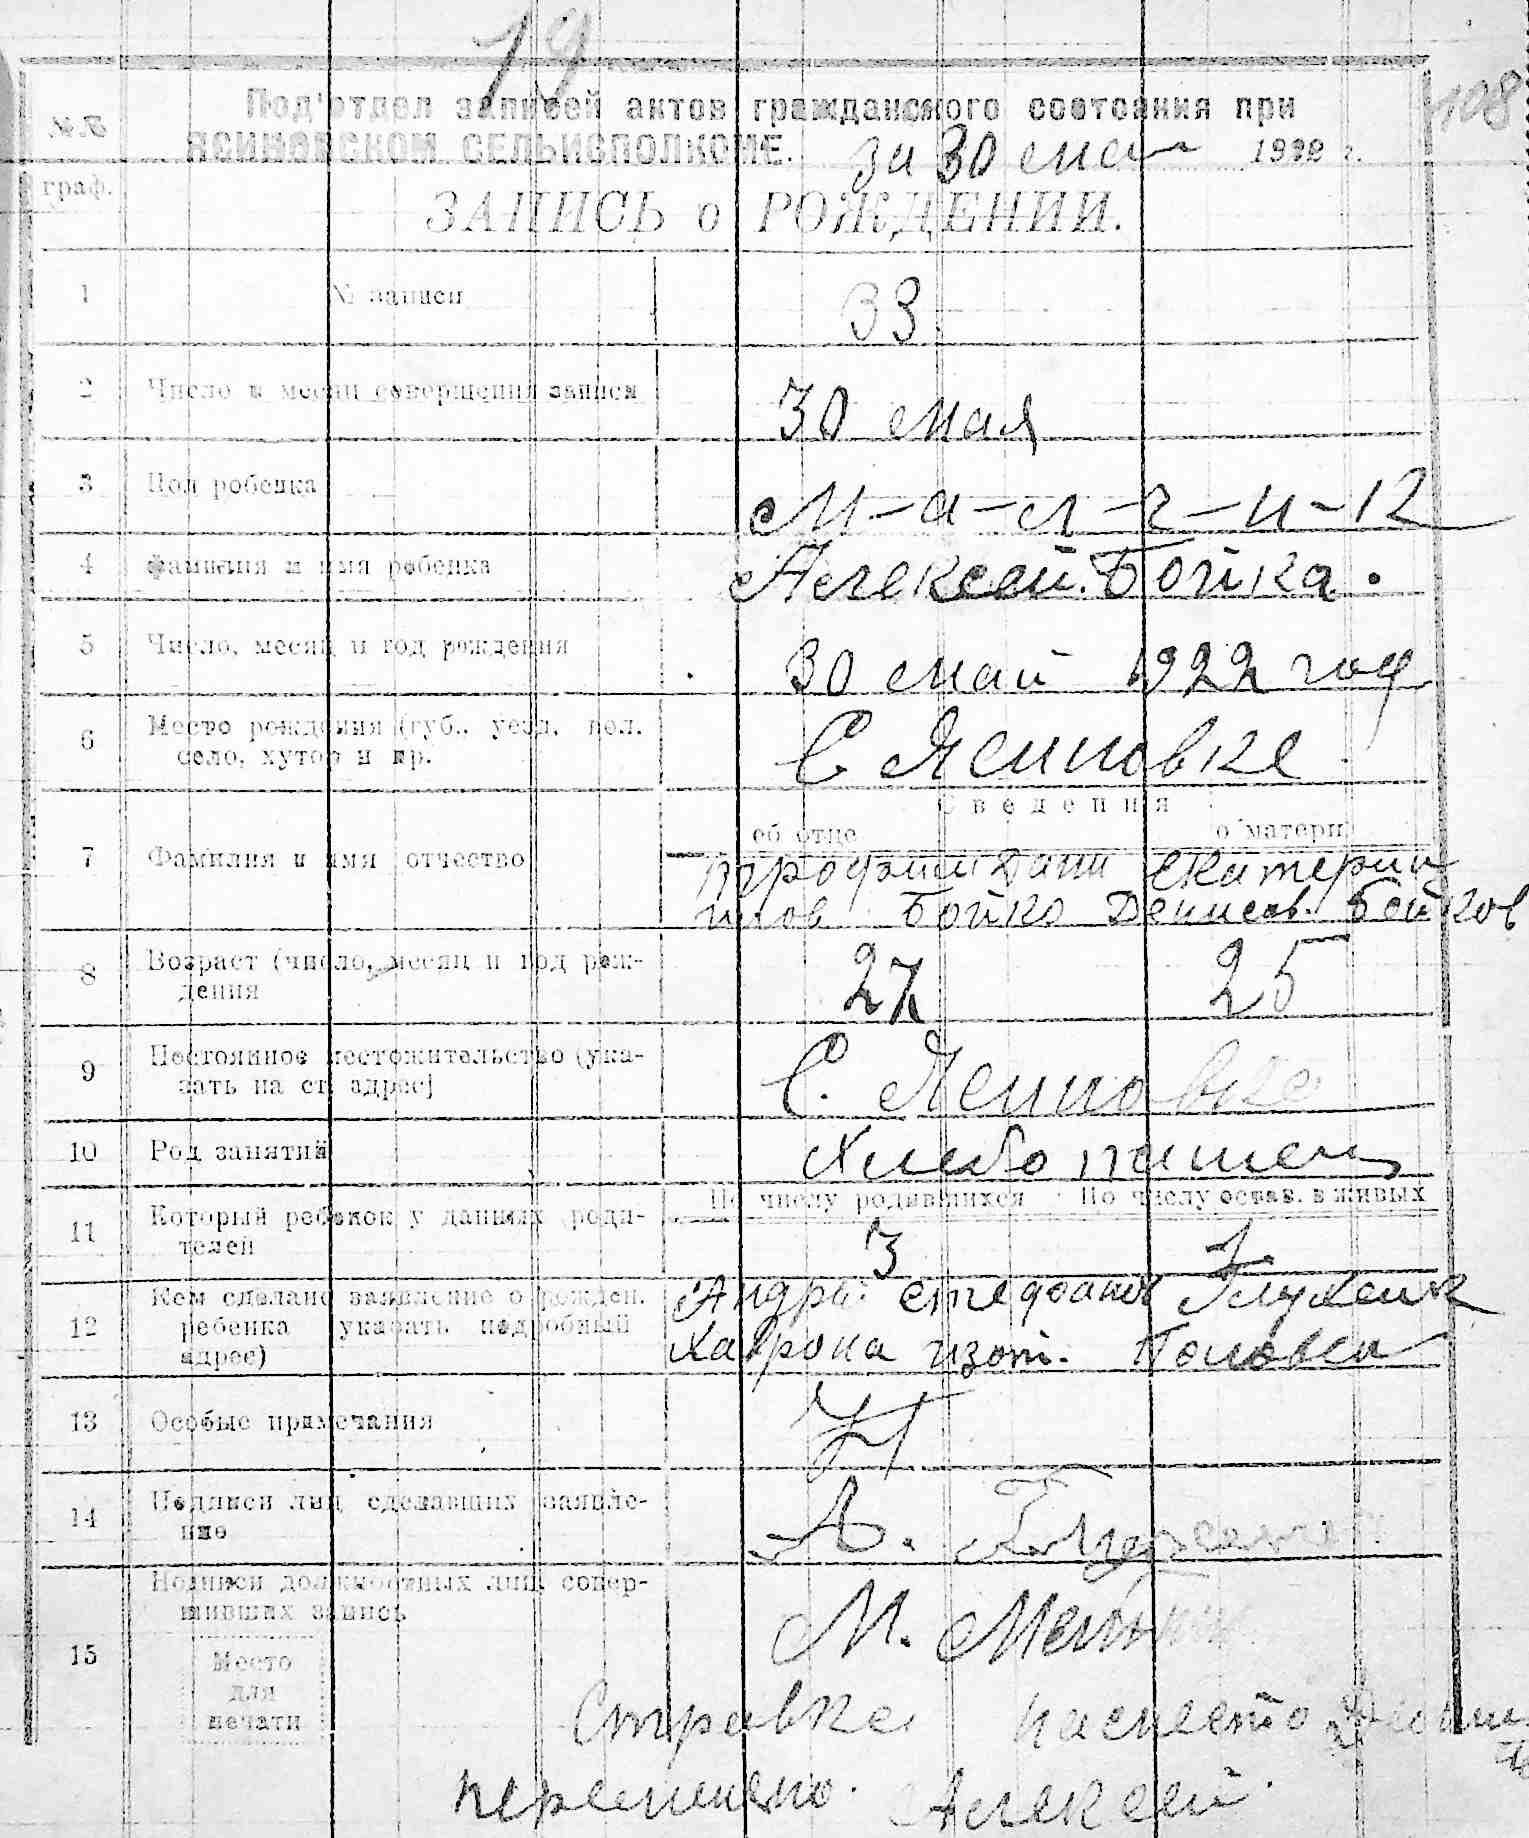 19
108
№№ граф.
Под'отдел записей актов гражданского состояния при
ЯСИНОВСКОМ СЕЛЬИСПОЛКОМЕ. за 30 мая 1922 г.
ЗАПИСЬ о РОЖДЕНИИ.
1 № записи 33
2 Число и месяц совершения записи 30 мая
3 Пол ребенка М-а-л-ч-и-к
4 Фамилия и имя ребенка Алексей. Бойка.
5 Число, месяц и год рождения 30 май 1922 год
6 Место рождения (губ., уезд, вол.
село, хутор и пр. С Ясиновке
Сведения
об отце о матери
7 Фамилия и имя отчество Трофим Дани Екатерин
илов Бойко Денисов. Бойков
8 Возраст (число, месяц и год рож-
дения 27 25
9 Постоянное местожительство (ука-
зать на ст. адрес) С. Ясиновке
10 Род занятий Хлебопашец
По числу родившихся По числу остав. в живых
11 Который ребенок у данных роди-
телей 3 1
12 Кем сделано заявление о рожден. Андрей
ребенка указать подробный
адрес) Изот.
13 Особые примечания
14 Подписи лиц сделавших заявле-
ние А.
15 Подписи должностных лиц, совер-
шивших запись М.
Место
для
печати
Справка
Алексей